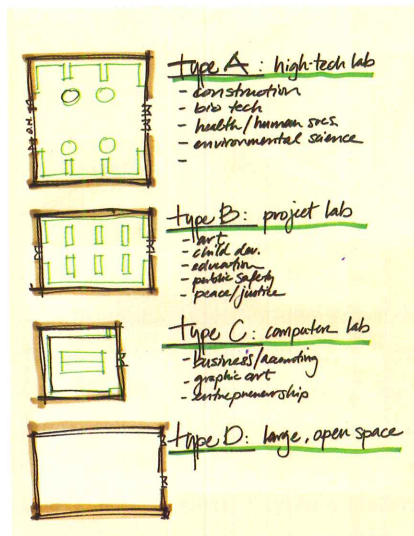 type A: high-tech lab
- construction
- bio tech
- health/human socs.
- environmental science
-
type B: project lab
- art
- child dev.
- education
- public safety
- peace/justice
type C: computer lab
- business/accounting
- graphic art
- entrepreneurship
type D: large, open space